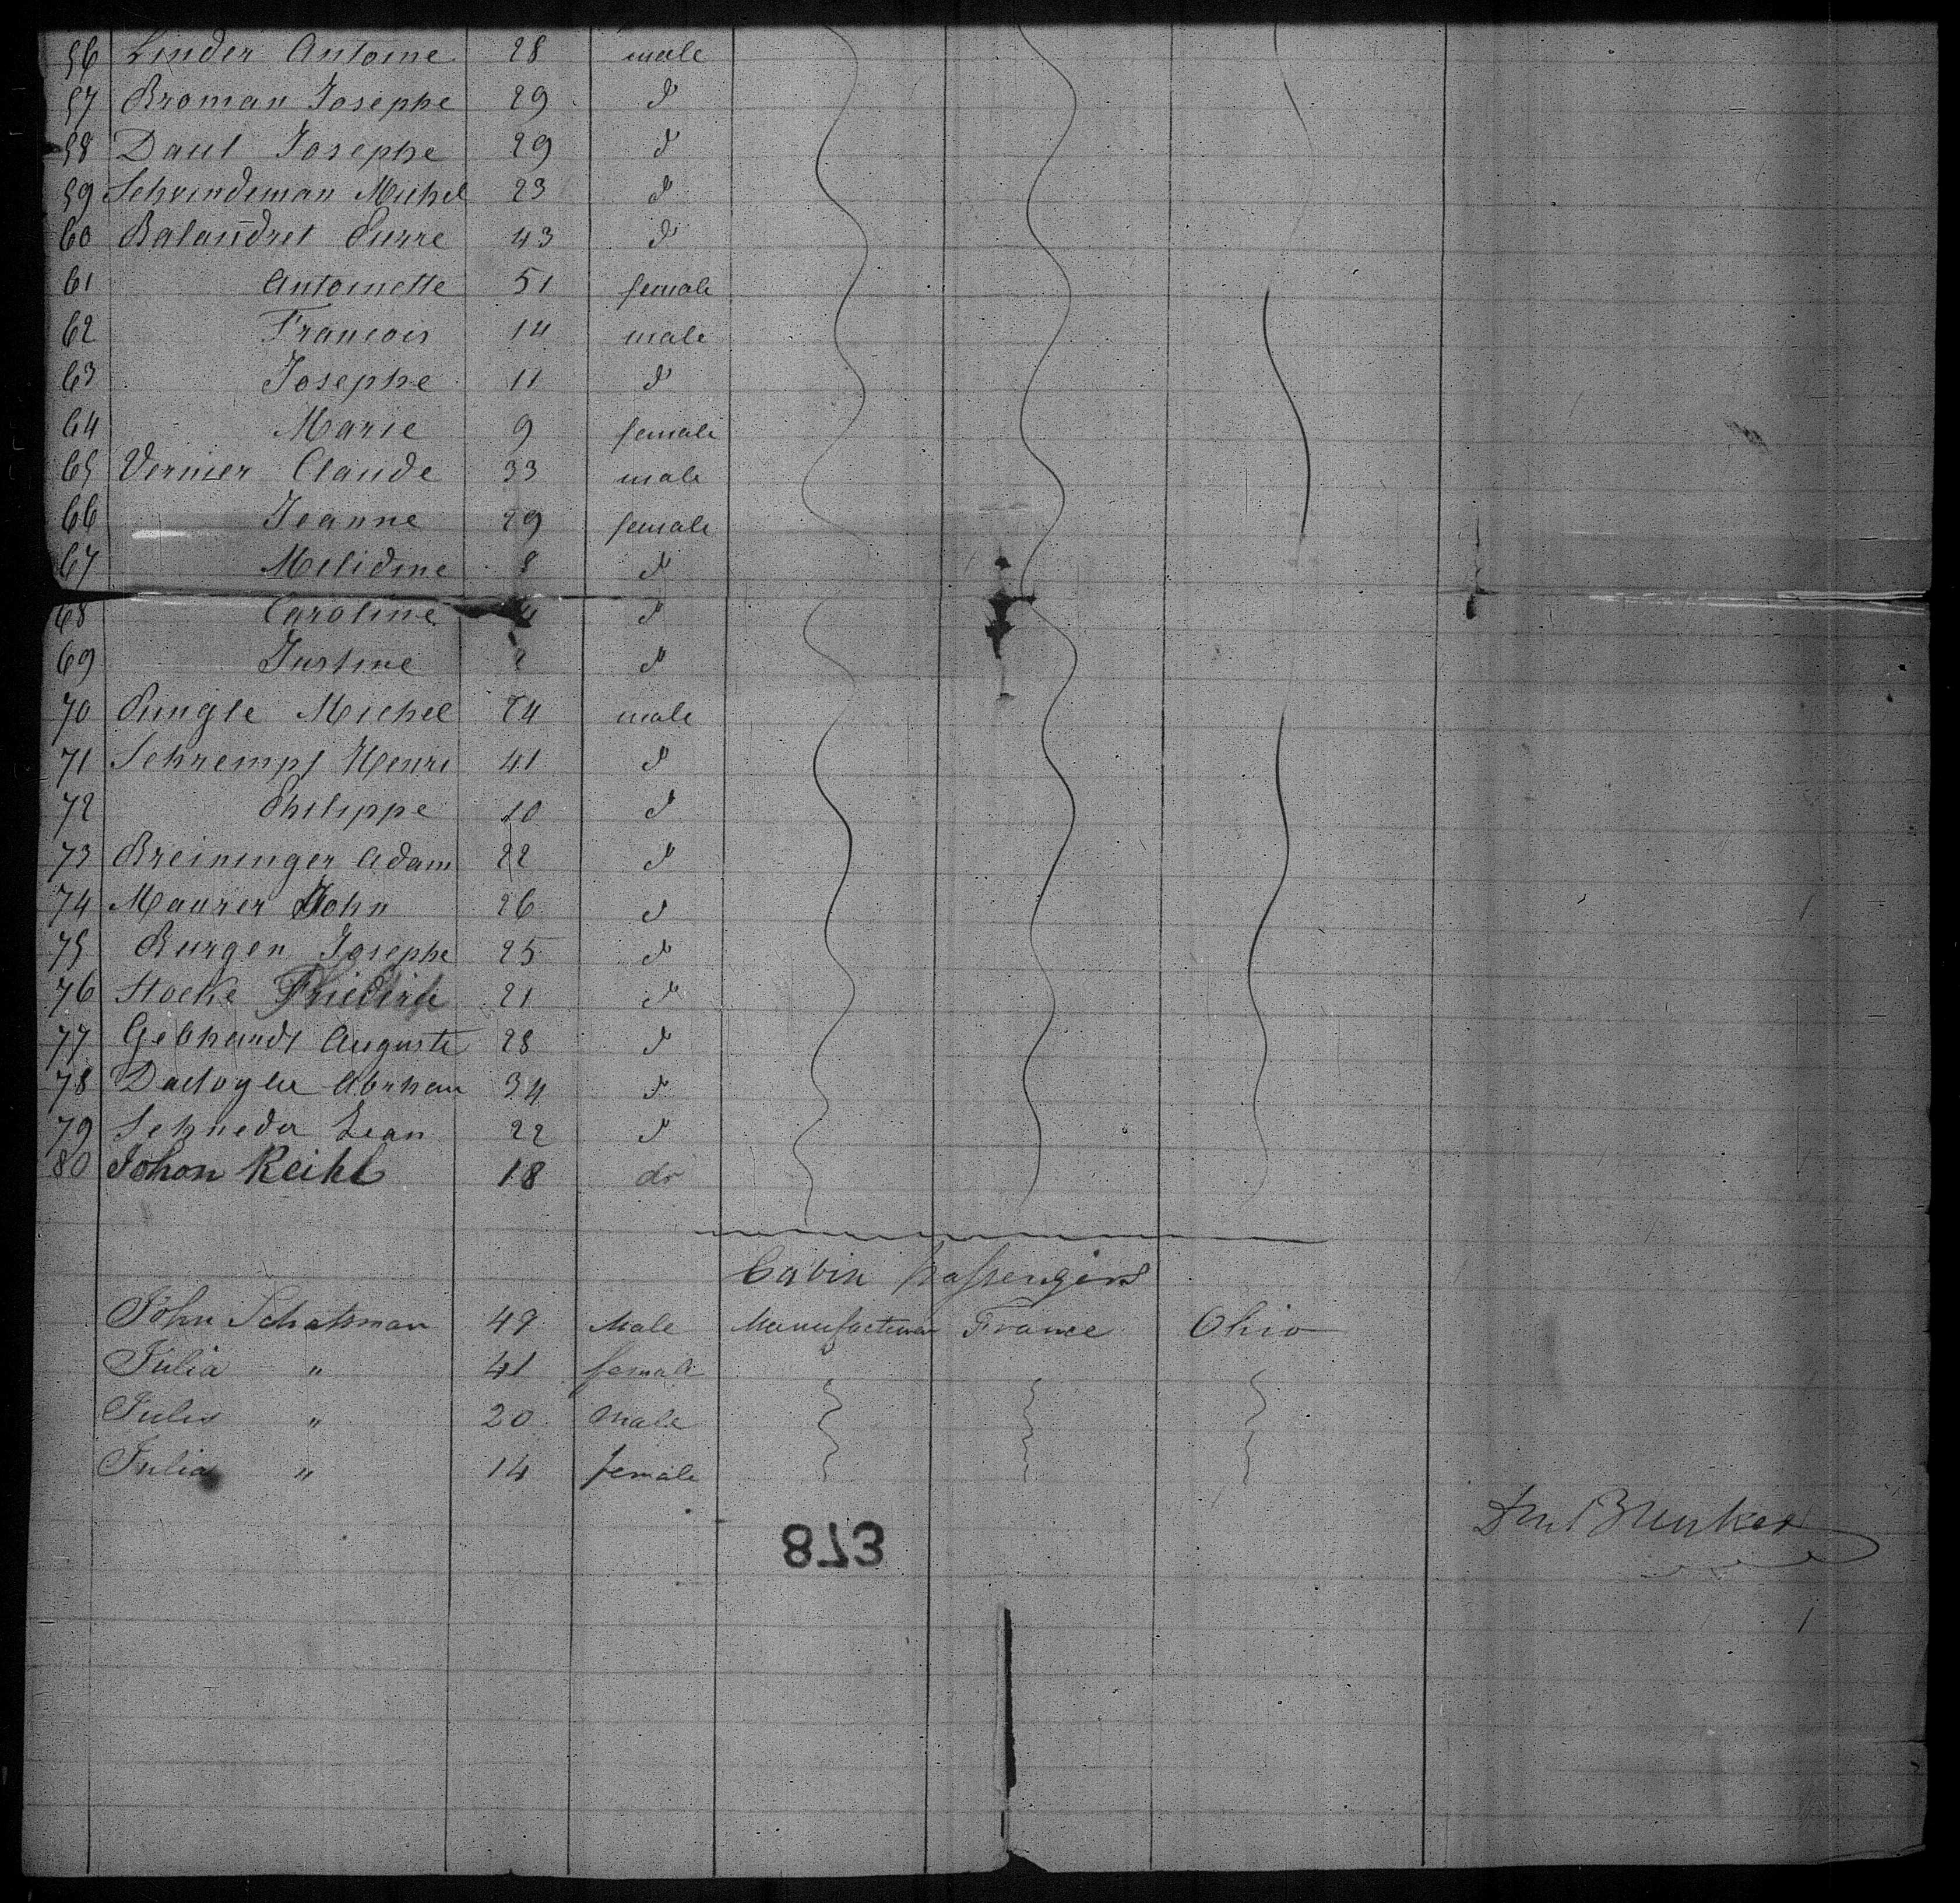 56 Linder Antoine 28 male
57 Broman Josephe 29 d
58 Daul Josephe 29 d
59 Schvindeman Michel 23 d
60 Balandret Pierre 43 d
61 Antoinette 51 female
62 Francois 14 male
63 Josephe 11 d
64 Marie 9 female
65 Vernier Claude 33 male
66 Jeanne 29 female
67 Melidine 8 d
68 Caroline 4 d
69 Justine d
70 Michel 24 male
71 Schrempf Henri 41 d
72 Philippe 10 d
73 Breininger Adam 22 d
74 Maurer John 26 d
75 Burgen Josephe 25 d
76 Stocke 21 d
77 Gebhardt Auguste 28 d
78 34 d
79 Schneder Jean 22 d
80 Johon Reihl 18 do
Cabin passengers
John Schatsman 49 Male Manufacturer France Ohio
Julia " 41 female
Jules " 20 male
Julia " 14 female
Bunker
873